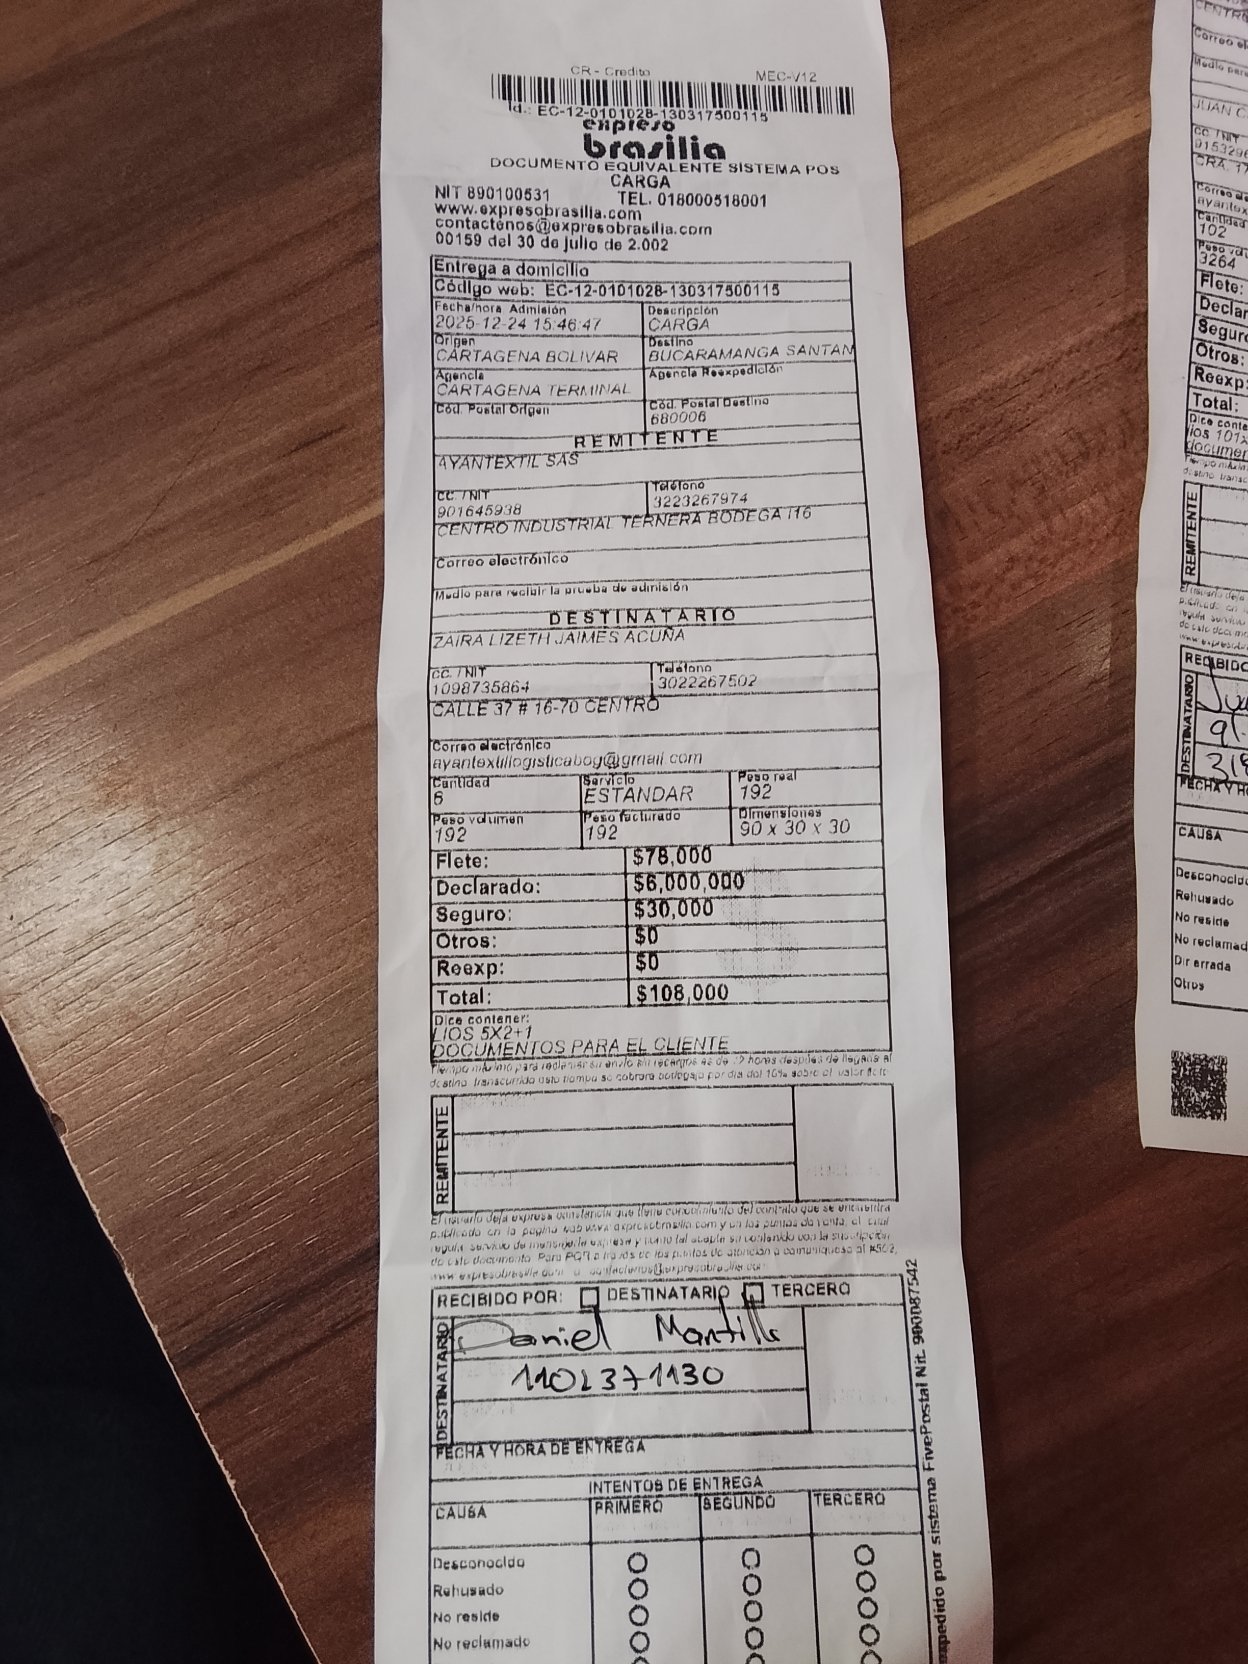 CR - Credito MEC-V12
Id.: EC-12-0101028-130317500115
expreso
brasilia
DOCUMENTO EQUIVALENTE SISTEMA POS
CARGA
NIT 890100531 TEL. 018000518001
www.expresobrasilia.com
contactenos@expresobrasilia.com
00159 del 30 de julio de 2.002
Entrega a domicilio
Código web: EC-12-0101028-130317500115
Fecha/hora Admisión Descripción
2025-12-24 15:46:47 CARGA
Origen Destino
CARTAGENA BOLIVAR BUCARAMANGA SANTAN
Agencia Agencia Reexpedición
CARTAGENA TERMINAL
Cód. Postal Origen Cód. Postal Destino
680006
REMITENTE
AYANTEXTIL SAS
CC. / NIT Teléfono
901645938 3223267974
CENTRO INDUSTRIAL TERNERA BODEGA I16
Correo electrónico
Medio para recibir la prueba de admisión
DESTINATARIO
ZAIRA LIZETH JAIMES ACUÑA
CC. / NIT Teléfono
1098735864 3022267502
CALLE 37 # 16-70 CENTRO
Correo electrónico
ayantextillogisticabog@gmail.com
Cantidad Servicio Peso real
6 ESTANDAR 192
Peso volumen Peso facturado Dimensiones
192 192 90 x 30 x 30
Flete: $78,000
Declarado: $6,000,000
Seguro: $30,000
Otros: $0
Reexp: $0
Total: $108,000
Dice contener:
LIOS 5X2+1
DOCUMENTOS PARA EL CLIENTE
Tiempo máximo para reclamar su envío sin recargos es de 72 horas después de llegada al
destino, transcurrido este tiempo se cobrará bodegaje por día del 10% sobre el valor flete
REMITENTE
El usuario deja expresa constancia que tiene conocimiento del contrato que se encuentra
publicado en la pagina web www.expresobrasilia.com y en los puntos de venta, el cual
regula servicio de mensajería expresa y como tal acepta su contenido con la suscripción
de este documento. Para PQR a través de los puntos de atención o comuníquese al #502,
www.expresobrasilia.com
RECIBIDO POR: DESTINATARIO TERCERO
DESTINATARIO
Daniel Mantilla
1102371130
FECHA Y HORA DE ENTREGA
INTENTOS DE ENTREGA
CAUSA PRIMERO SEGUNDO TERCERO
Desconocido
Rehusado
No reside
No reclamado
expedido por sistema FivePostal Nit. 900087542
Correo
JUAN C
CC. / NIT
9153296
CRA. 17
ayantex
Cantidad
102
3264
Flete:
Declar
Seguro
Otros:
Reexp:
Total:
Dice conte
lios 101x
documen
REMITENTE
RECIBIDO
DESTINATARIO
FECHA Y HO
CAUSA
Desconocido
Rehusado
No reside
No reclamad
Dir errada
Otros